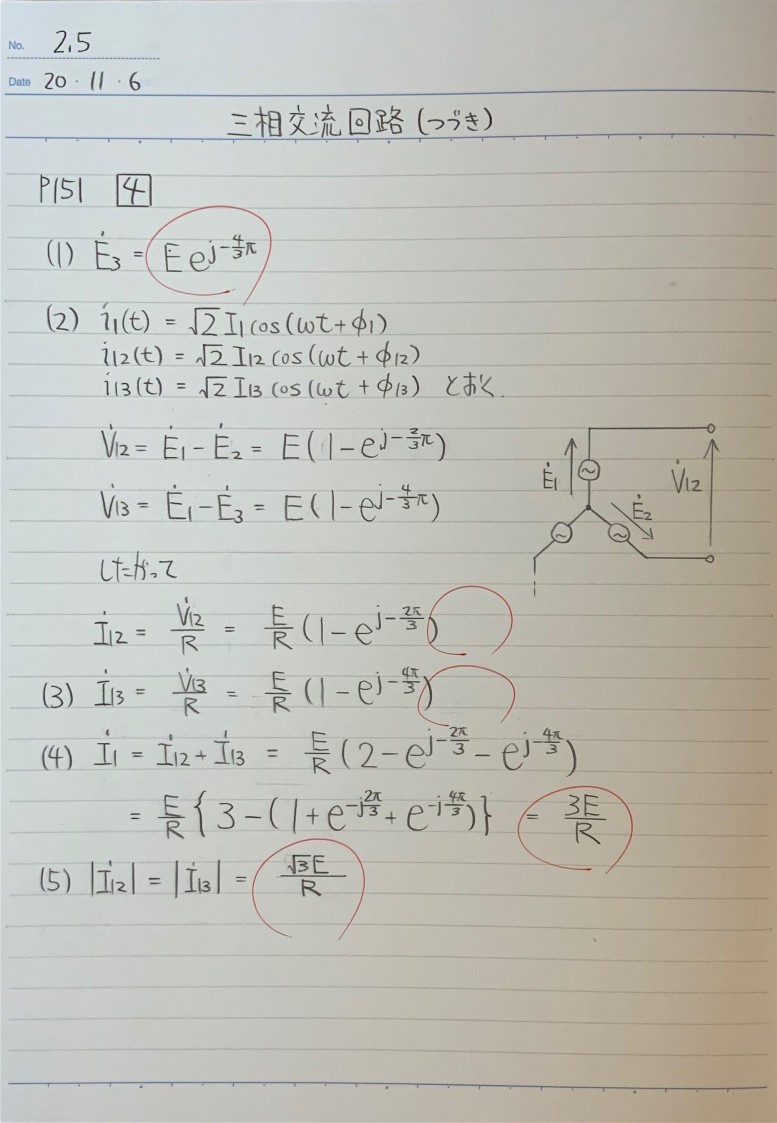 No. 2.5
Date 20・11・6
三相交流回路(つづき)
P151 4
(1) Ė3 = E e^{j-\frac{4}{3}π}
(2) i1(t) = √2 I1 cos(ωt+φ1)
i12(t) = √2 I12 cos(ωt+φ12)
i13(t) = √2 I13 cos(ωt+φ13) とおく.
V̇12 = Ė1 - Ė2 = E(1-e^{j-\frac{2}{3}π})
V̇13 = Ė1 - Ė3 = E(1-e^{j-\frac{4}{3}π})
Ė1
Ė2
V̇12
したがって
İ12 = \frac{V̇12}{R} = \frac{E}{R}(1-e^{j-\frac{2π}{3}})
(3) İ13 = \frac{V̇13}{R} = \frac{E}{R}(1-e^{j-\frac{4π}{3}})
(4) İ1 = İ12 + İ13 = \frac{E}{R}(2-e^{j-\frac{2π}{3}}-e^{j-\frac{4π}{3}})
= \frac{E}{R}{3-(1+e^{-j\frac{2π}{3}}+e^{-j\frac{4π}{3}})} = \frac{3E}{R}
(5) |İ12| = |İ13| = \frac{√3E}{R}